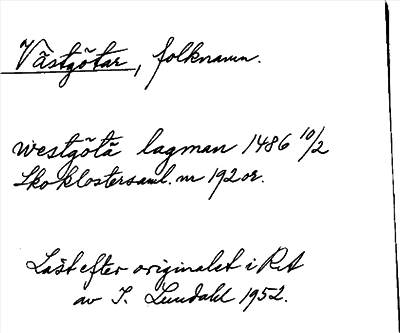 Västgötar, folknamn.
westgöta lagman 1486 10/2
Skoklostersaml. nr 192 or.
Läst efter originalet i RA
av I. Lundahl 1952.